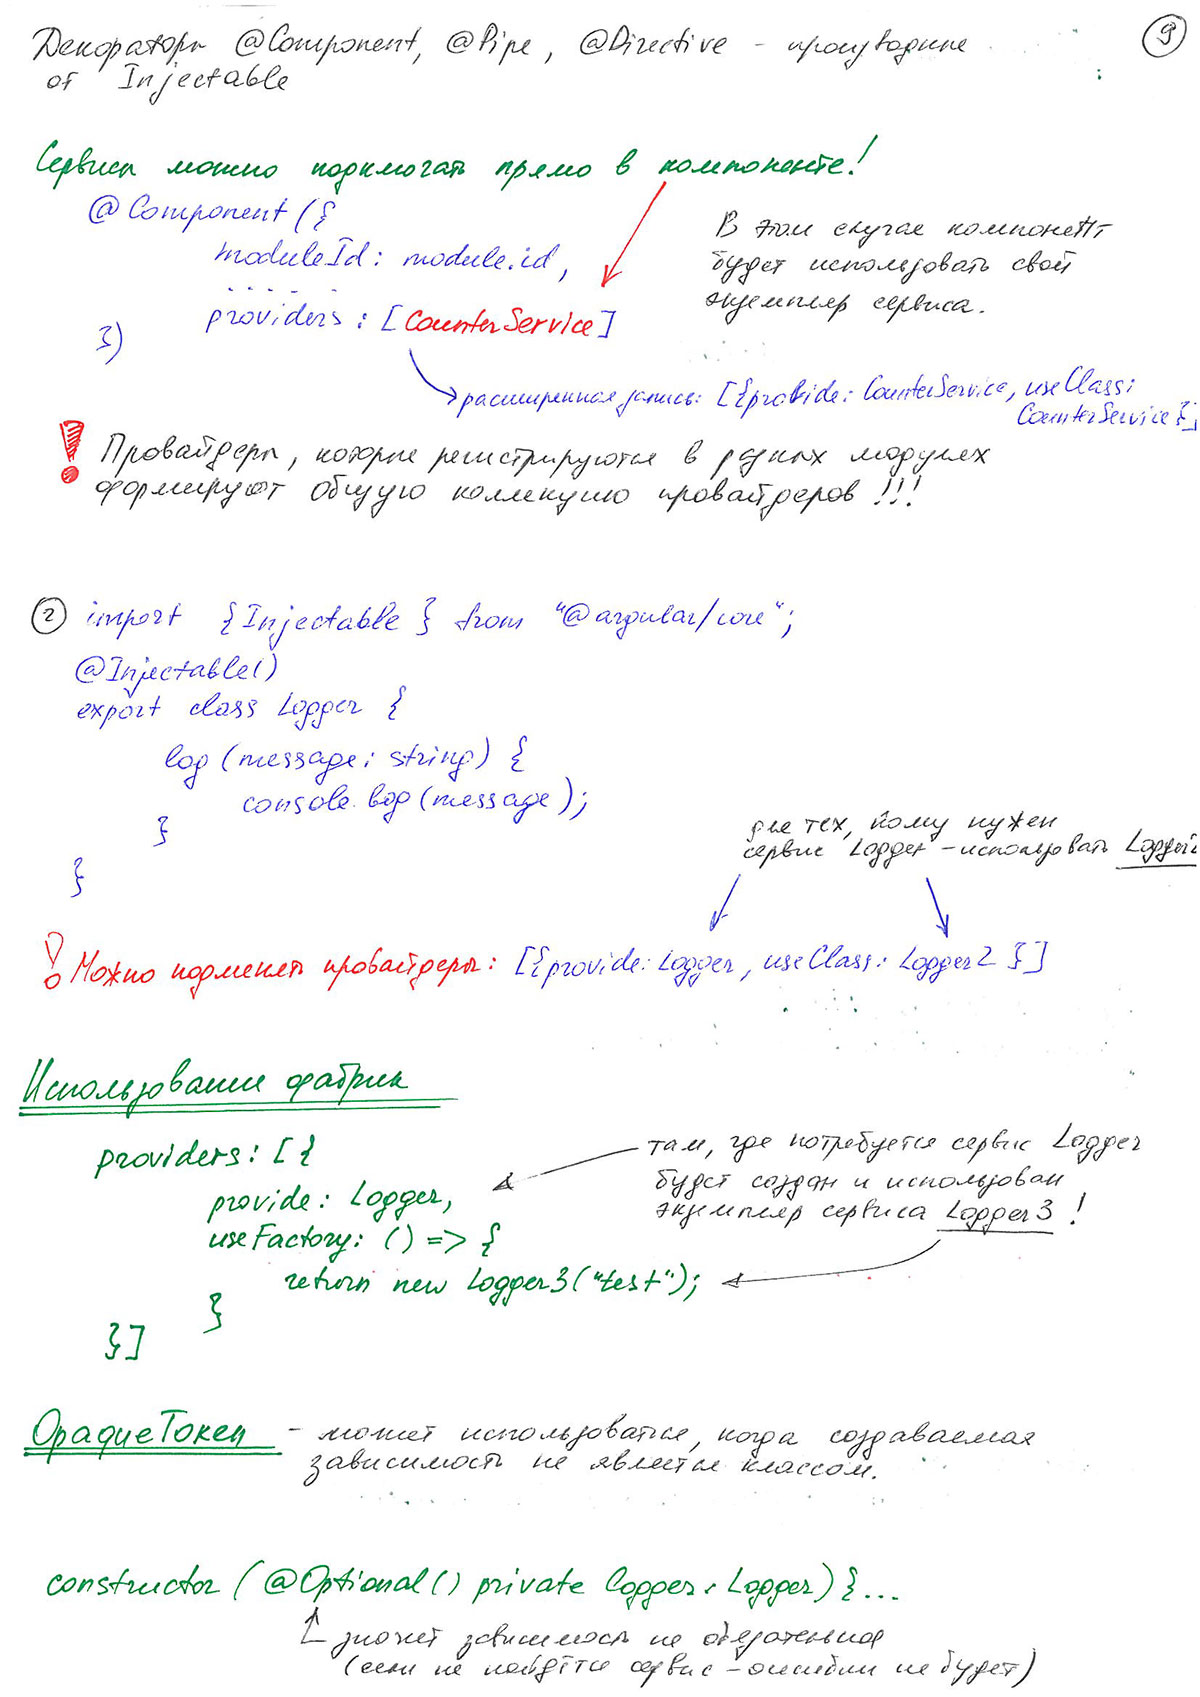 Декораторы @Component, @Pipe, @Directive - производные
от Injectable
9
Сервисы можно подключать прямо в компоненте!
@Component({
moduleId: module.id,
. . . . . .
providers: [CounterService]
})
В этом случае компонент
будет использовать свой
экземпляр сервиса.
расширенная запись: [{provide: CounterService, useClass:
CounterService}]
! Провайдеры, которые регистрируются в разных модулях
формируют общую коллекцию провайдеров!!!
2 import {Injectable} from "@angular/core";
@Injectable()
export class Logger {
log(message: string) {
console.log(message);
}
}
для тех, кому нужен
сервис Logger - использовать Logger2
! Можно подменять провайдеры: [{provide: Logger, useClass: Logger2}]
Использование фабрик
providers: [{
provide: Logger,
useFactory: () => {
return new Logger3("test");
}
}]
там, где потребуется сервис Logger
будет создан и использован
экземпляр сервиса Logger3!
OpaqueToken - может использоваться, когда создаваемая
зависимость не является классом.
constructor(@Optional() private logger: Logger) {...
значит зависимость не обязательная
(если не найдётся сервис - ошибки не будет)